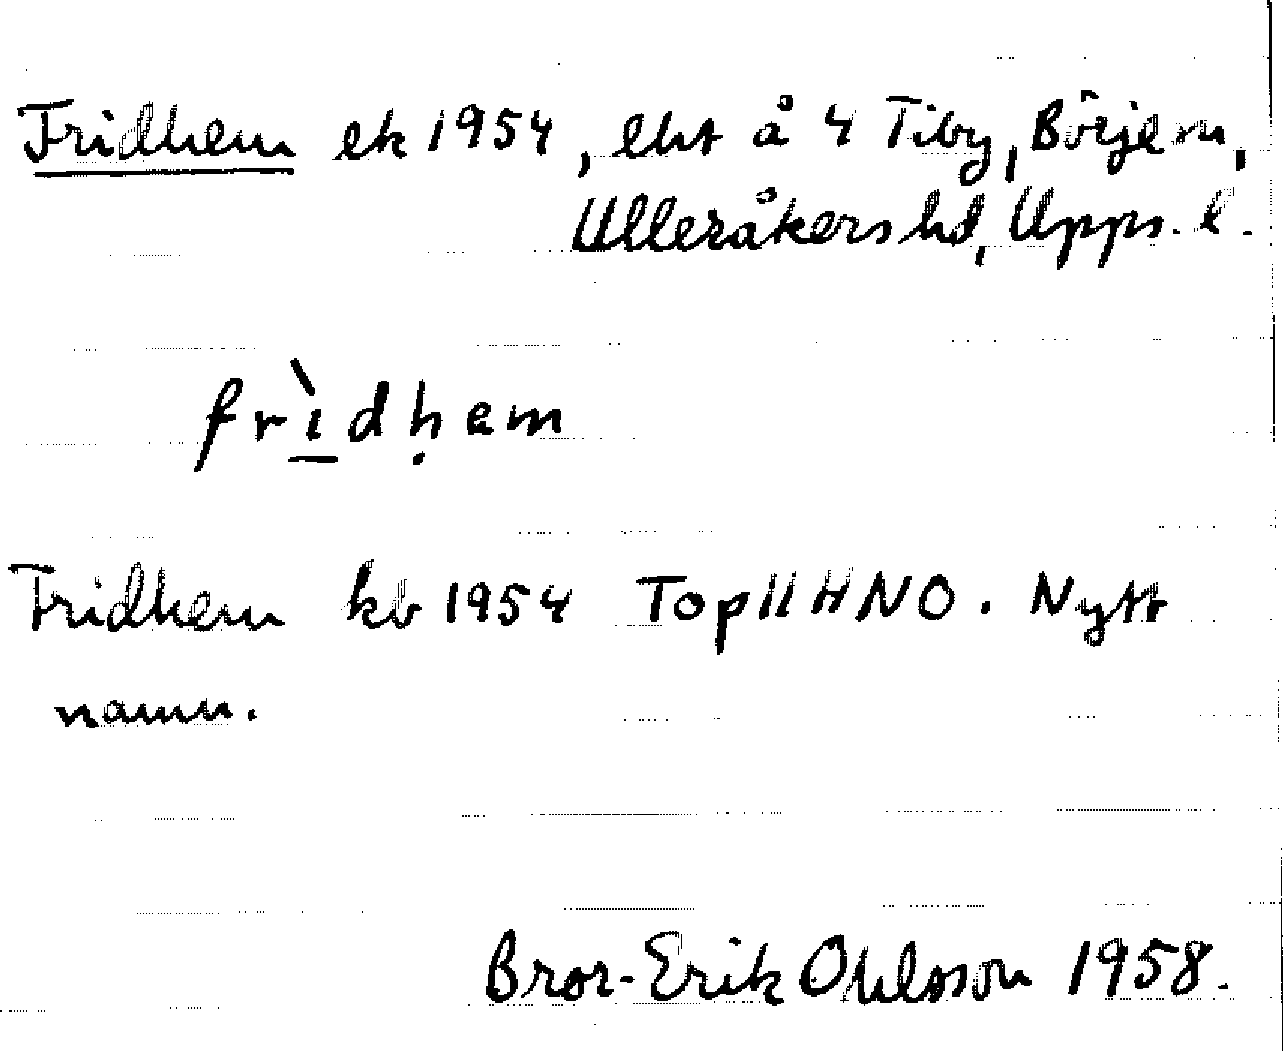 Fridhem ek 1954, lht å 4 Tiby, Börje sn,
Ulleråkers hd, Upps. l.
frìdḥem
Fridhem kb 1954 Top 11 H NO. Nytt
namn.
Bror-Erik Ohlsson 1958.